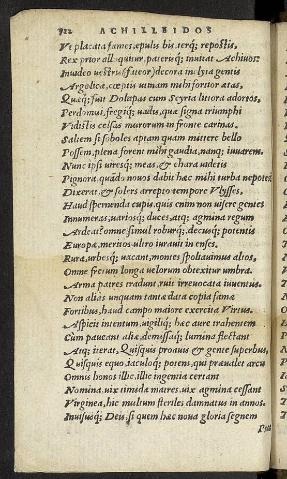 ACHILLEIDOS
Vt placata fames, epulis bis, terq; repostis,
Rex prior alloquitur, paterisq; inuitat Achiuos:
Inuideo uestris fateor decora inclyta gentis
Argolicæ, cœptis utinam mihi fortior ætas,
Quæq; fuit Dolopas cum Scyria littora adortos,
Perdomui, fregiq; uadis, quæ signa triumphi
Vidistis celsas murorum in fronte carinas.
Saltem si soboles aptam quam mittere bello
Possem, plena forent mihi gaudia, nanq; iuuarem.
Nunc ipsi uiresq; meas, & chara uidetis
Pignora, quãdo nouos dabit hæc mihi turba nepotes?
Dixerat, & solers arrepto tempore Vlysses,
Haud spernenda cupis, quis enim non uisere gentes
Innumeras, uariosq; duces, atq; agmina regum
Ardeat? omne simul roburq; decusq; potentis
Europæ, meritos ultro iurauit in enses.
Rura, urbesq; uacant, montes spoliauimus altos,
Omne fretum longa uelorum obtexitur umbra.
Arma patres tradunt, ruit irreuocata iuuentus.
Non alias unquam tantæ data copia famæ
Fortibus, haud campo maiore exercita Virtus.
Aspicit intentum, uigiliq; hæc aure trahentem
Cum paueant aliæ, demissaq; lumina flectant
Atq; iterat, Quisquis proauis & gente superbus,
Quisquis equo, iaculoq; potens, qui præualet arcu
Omnis honos illic, illic ingentia certant
Nomina, uix timidæ matres, uix agmina cessant
Virginea, hic multum steriles damnatus in annos.
Inuisusq; Deis, si quem hæc noua gloria segnem